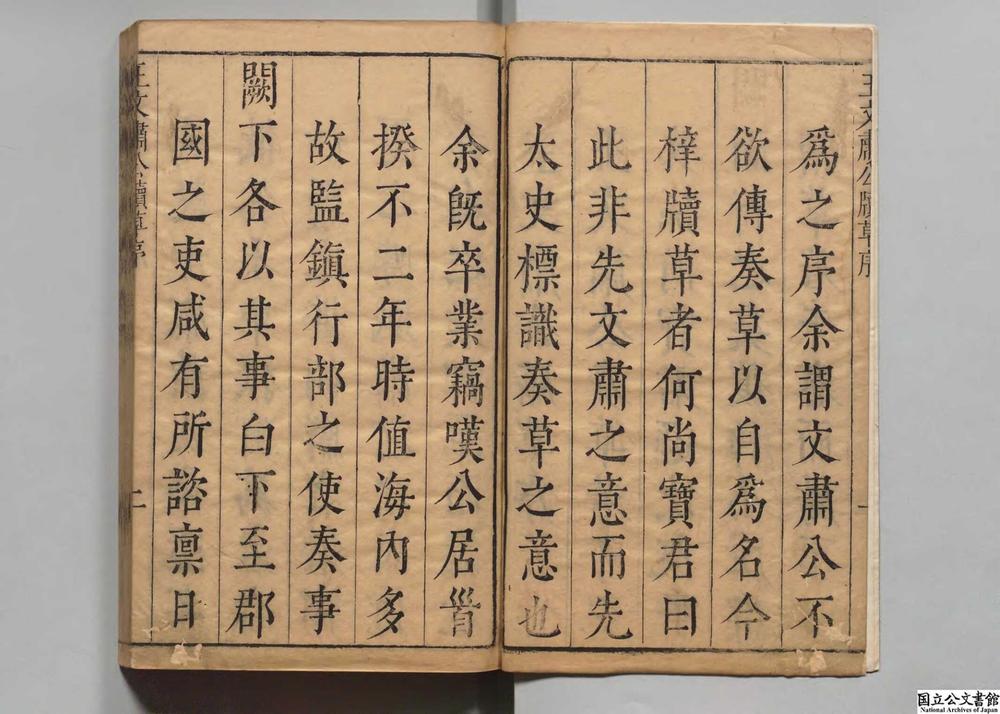 王文肅公牘草序
爲之序余謂文肅公不
欲傳奏草以自爲名今
梓牘草者何尚寶君曰
此非先文肅之意而先
太史標識奏草之意也
一
余旣卒業竊嘆公居首
揆不二年時值海內多
故監鎮行部之使奏事
闕下各以其事白下至郡
國之吏咸有所諮禀日
王文肅公牘草序
二
国立公文書館
National Archives of Japan